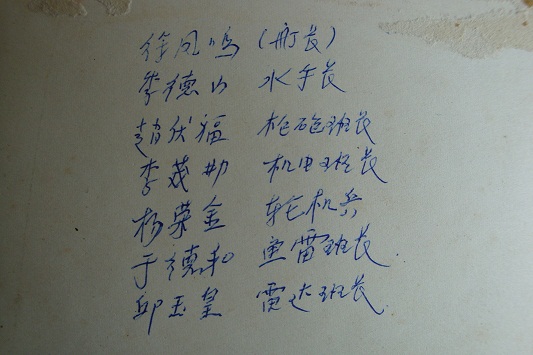 徐凤鸣（艇长）
李德山 水手长
赵伏福 枪炮班长
李茂勋 机电班长
杨荣金 轮机兵
于德和 鱼雷班长.
邱玉皇 雷达班长.